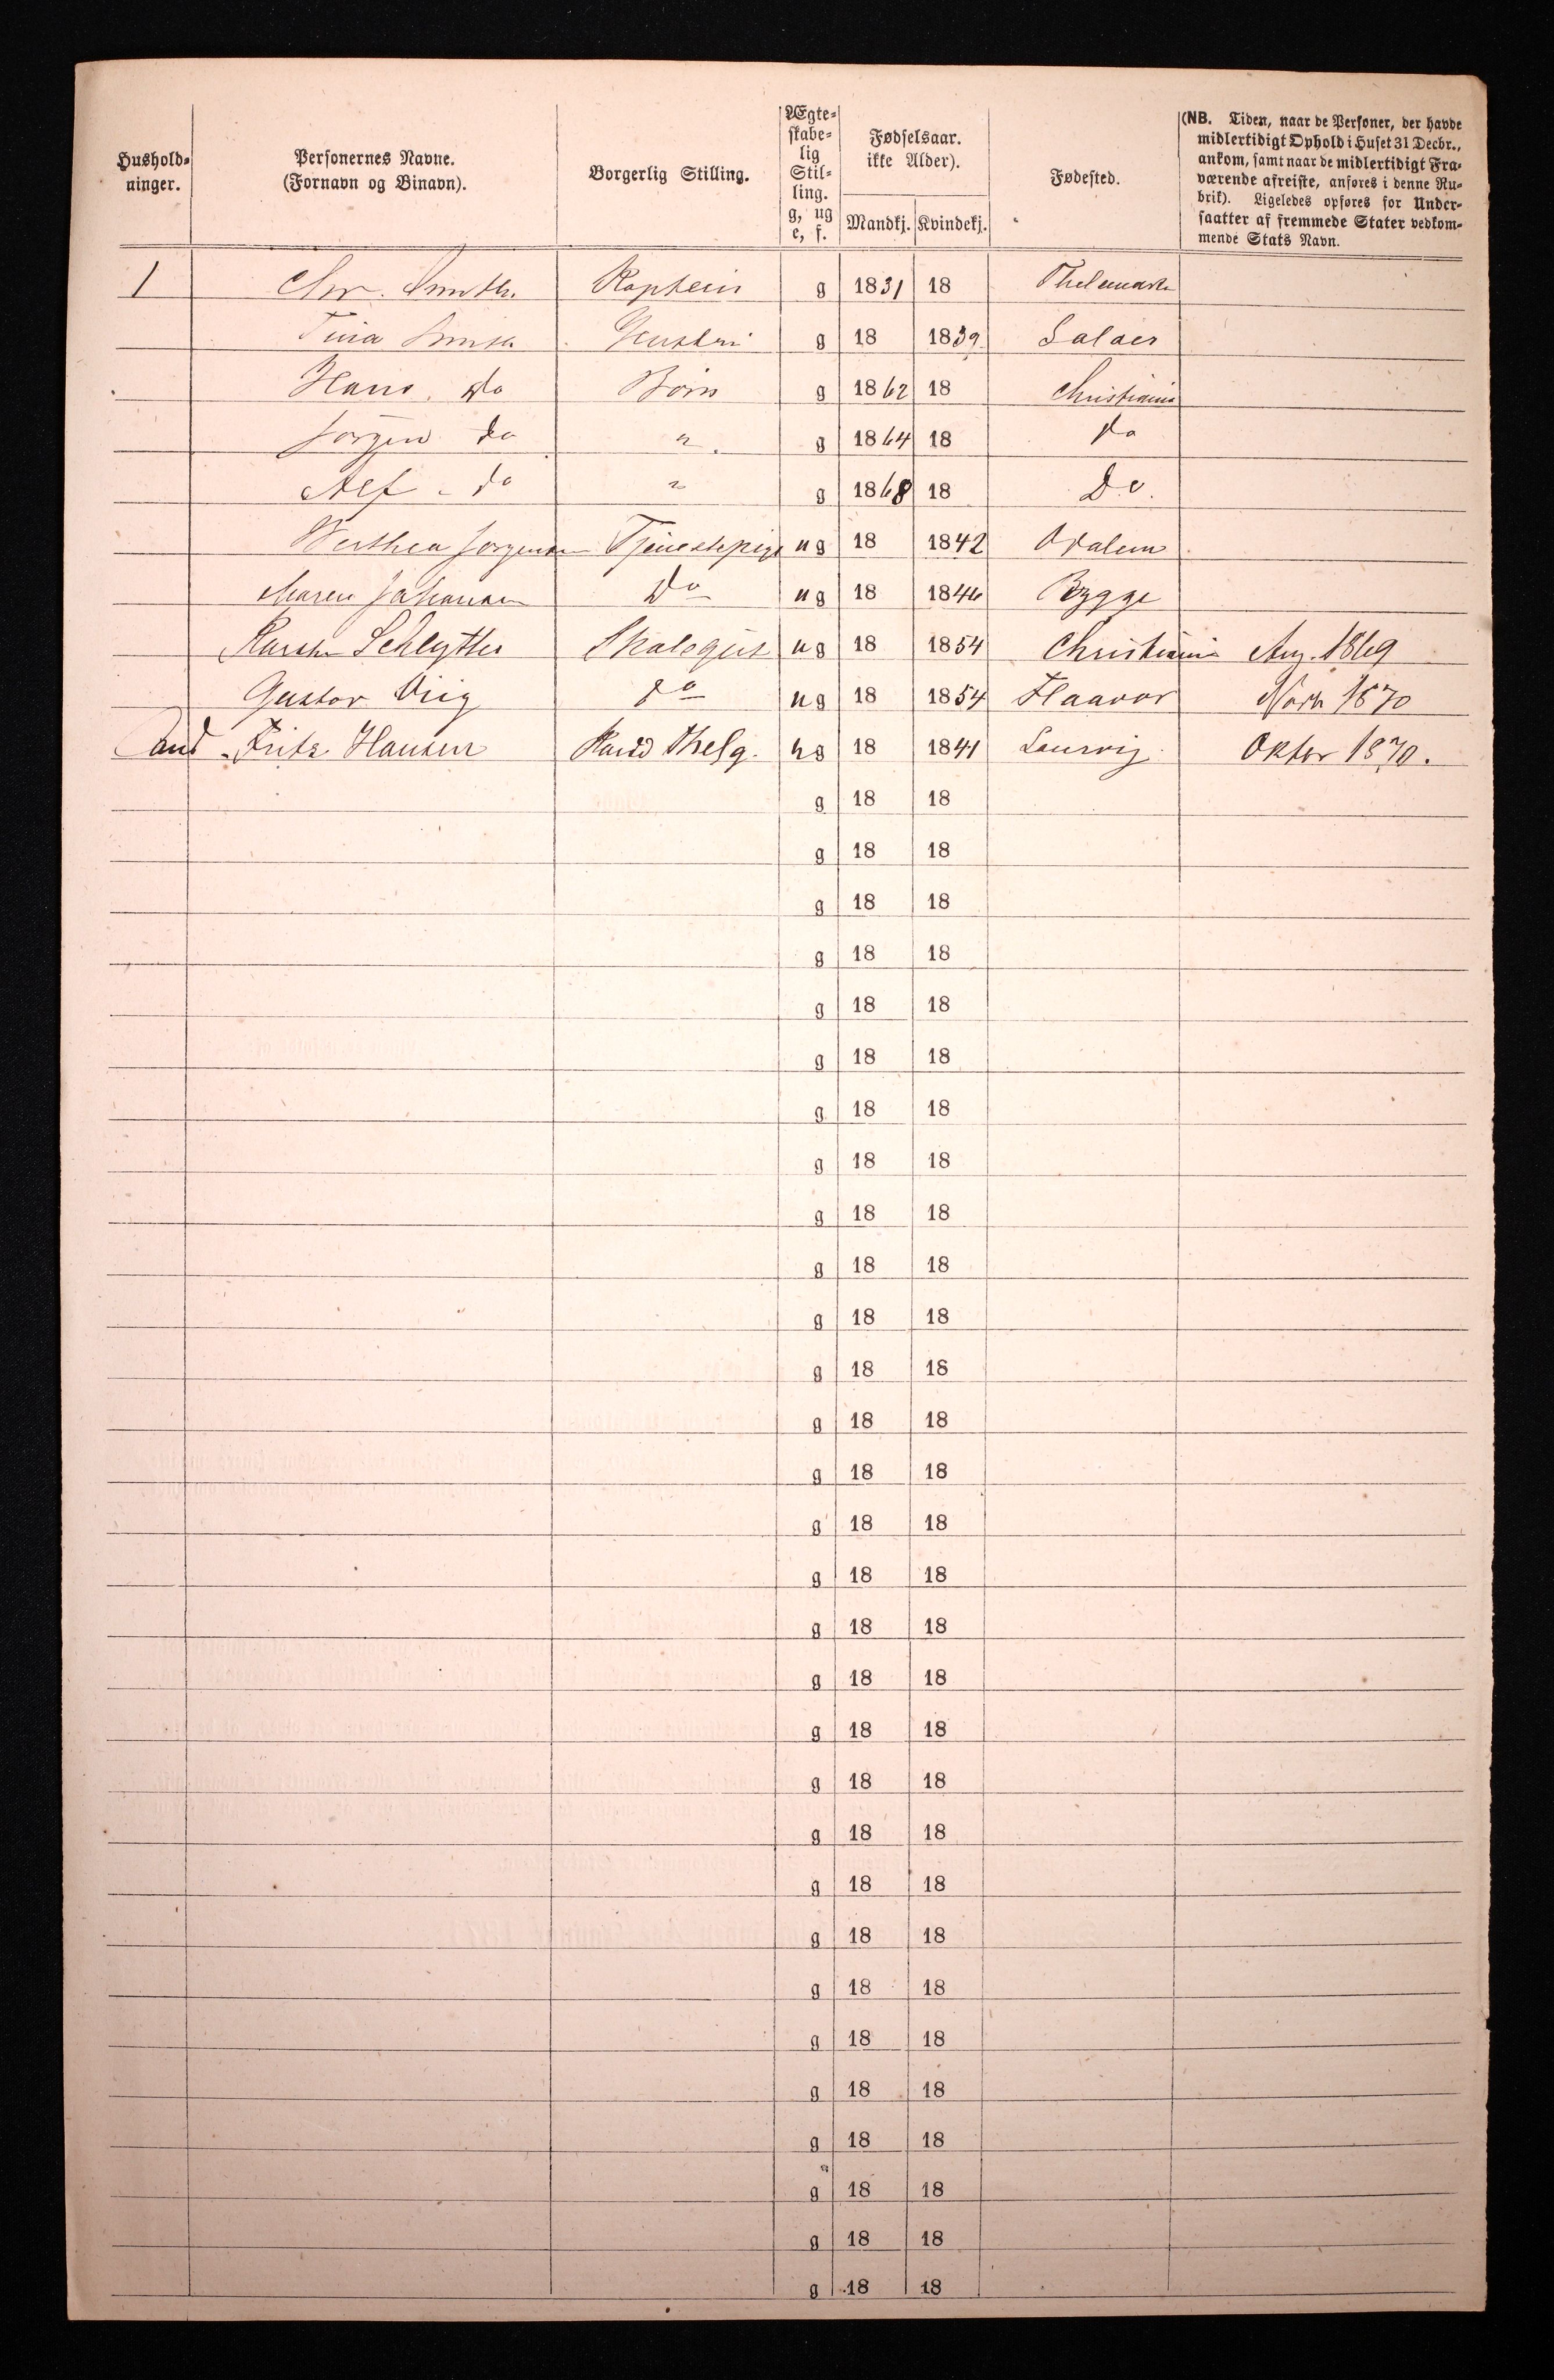 Hushold-
ninger.
Personernes Navne.
(Fornavn og Binavn).
Borgerlig Stilling.
Ægte-
skabe-
lig
Stil-
ling.
g, ug
e, f.
Fødselsaar.
ikke Alder).
Mandkj. Kvindekj.
Fødested.
(NB. Tiden, naar de Personer, der havde
midlertidigt Ophold i Huset 31 Decbr.,
ankom, samt naar de midlertidigt Fra-
værende afreiste, anføres i denne Ru-
brik). Ligeledes opføres for Under-
saatter af fremmede Stater vedkom-
mende Stats Navn.
1 Chr. Smith Kaptein g 1831 18 Thelemarken
Tina Smith Hustru g 18 1839 Saloer
Hans Do Børn g 1862 18 Christiania
Jørgen do " g 1864 18 Do
Alf - do " g 1868 18 Do.
Berthea Jørgensen Tjenestepige ug 18 1842 Odalen
Maren Johansen Do ug 18 1846 Rygge
Schlytter ug 18 1854 Christiania Aug. 1869
Gustav Viig do ug 18 1854 1870
Cand. Fritz Hansen Thelg. ug 18 1841 Laurvig Oktbr 1870.
g 18 18
g 18 18
g 18 18
g 18 18
g 18 18
g 18 18
g 18 18
g 18 18
g 18 18
g 18 18
g 18 18
g 18 18
g 18 18
g 18 18
g 18 18
g 18 18
g 18 18
g 18 18
g 18 18
g 18 18
g 18 18
g 18 18
g 18 18
g 18 18
g 18 18
g 18 18
g 18 18
g 18 18
g 18 18
g 18 18